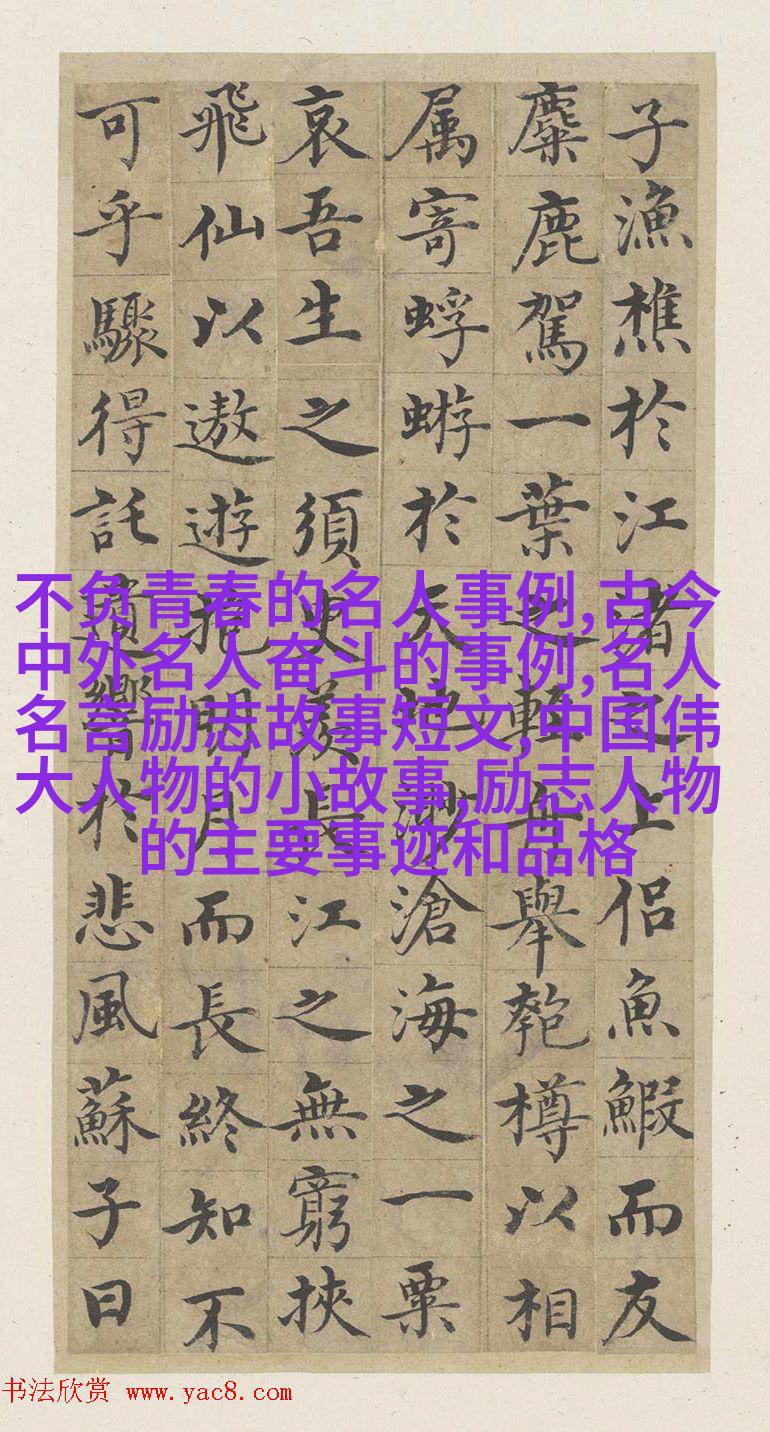 子漁樵於江渚之上侶魚鰕而友
麋鹿駕一葉之輕舟舉匏樽以相
属寄蜉蝣於天地渺滄海之一粟
哀吾生之須臾羨長江之無窮挾
飛仙以遨遊抱明月而長終知不
可乎驟得託遺響於悲風蘇子曰
不负青春的名人事例,古今
中外名人奋斗的事例,名人
名言励志故事短文,中国伟
大人物的小故事,励志人物
的主要事迹和品格
书法欣赏 www.yac8.com